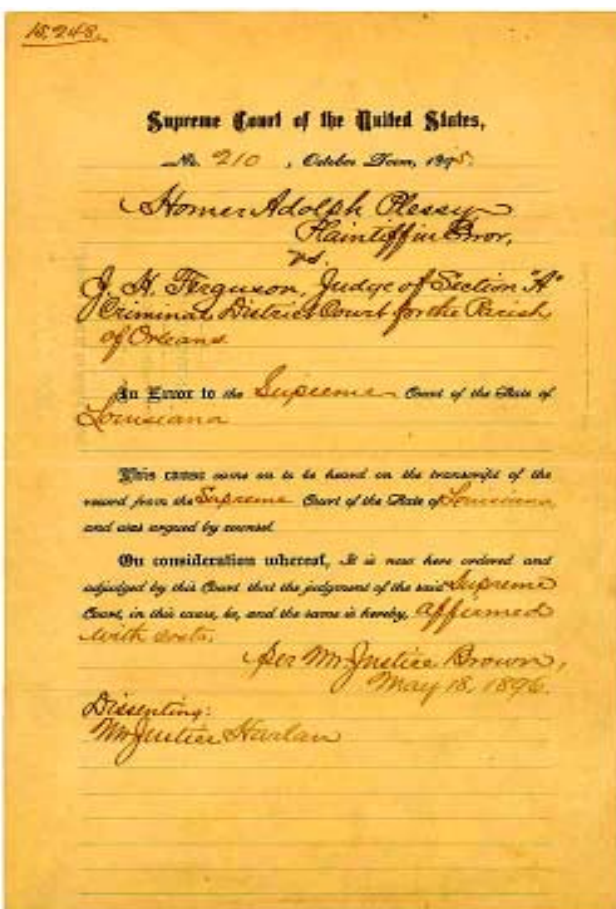 15,248.
Supreme Court of the United States,
No. 210, October Term, 1895.
Homer Adolph Plessy
Plaintiff in Error,
vs.
J. H. Ferguson, Judge of Section "A"
Criminal District Court for the Parish
of Orleans
In Error to the Supreme Court of the State of
Louisiana
This cause came on to be heard on the transcript of the
record from the Supreme Court of the State of Louisiana,
and was argued by counsel.
On consideration whereof, It is now here ordered and
adjudged by this Court that the judgment of the said Supreme
Court, in this cause, be, and the same is hereby, affirmed
with costs.
Per Mr. Justice Brown,
May 18, 1896.
Dissenting:
Mr. Justice Harlan